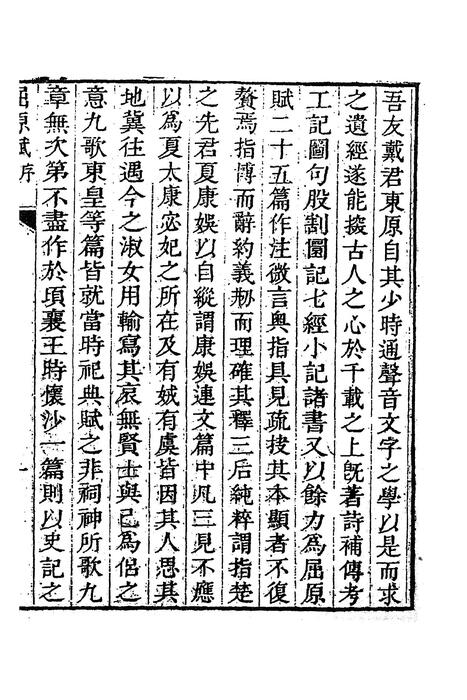 吾友戴君東原自其少時通聲音文字之學以是而求
之遺經遂能𢮦古人之心於千載之上既著詩補傳考
工記圖句股割圜記七經小記諸書又以餘力為屈原
賦二十五篇作注微言奧指具見疏抉其本顯者不復
贅焉指博而辭約義刱而理確其釋三后純粹謂指楚
之先君夏康娛以自縱謂康娛連文篇中凡三見不應
以為夏太康宓妃之所在及有娀有虞皆因其人思其
地冀往遇今之淑女用輸寫其哀無賢士與己為侶之
意九歌東皇等篇皆就當時祀典賦之非祠神所歌九
章無次第不盡作於頃襄王時懷沙一篇則以史記之
屈原賦序
一